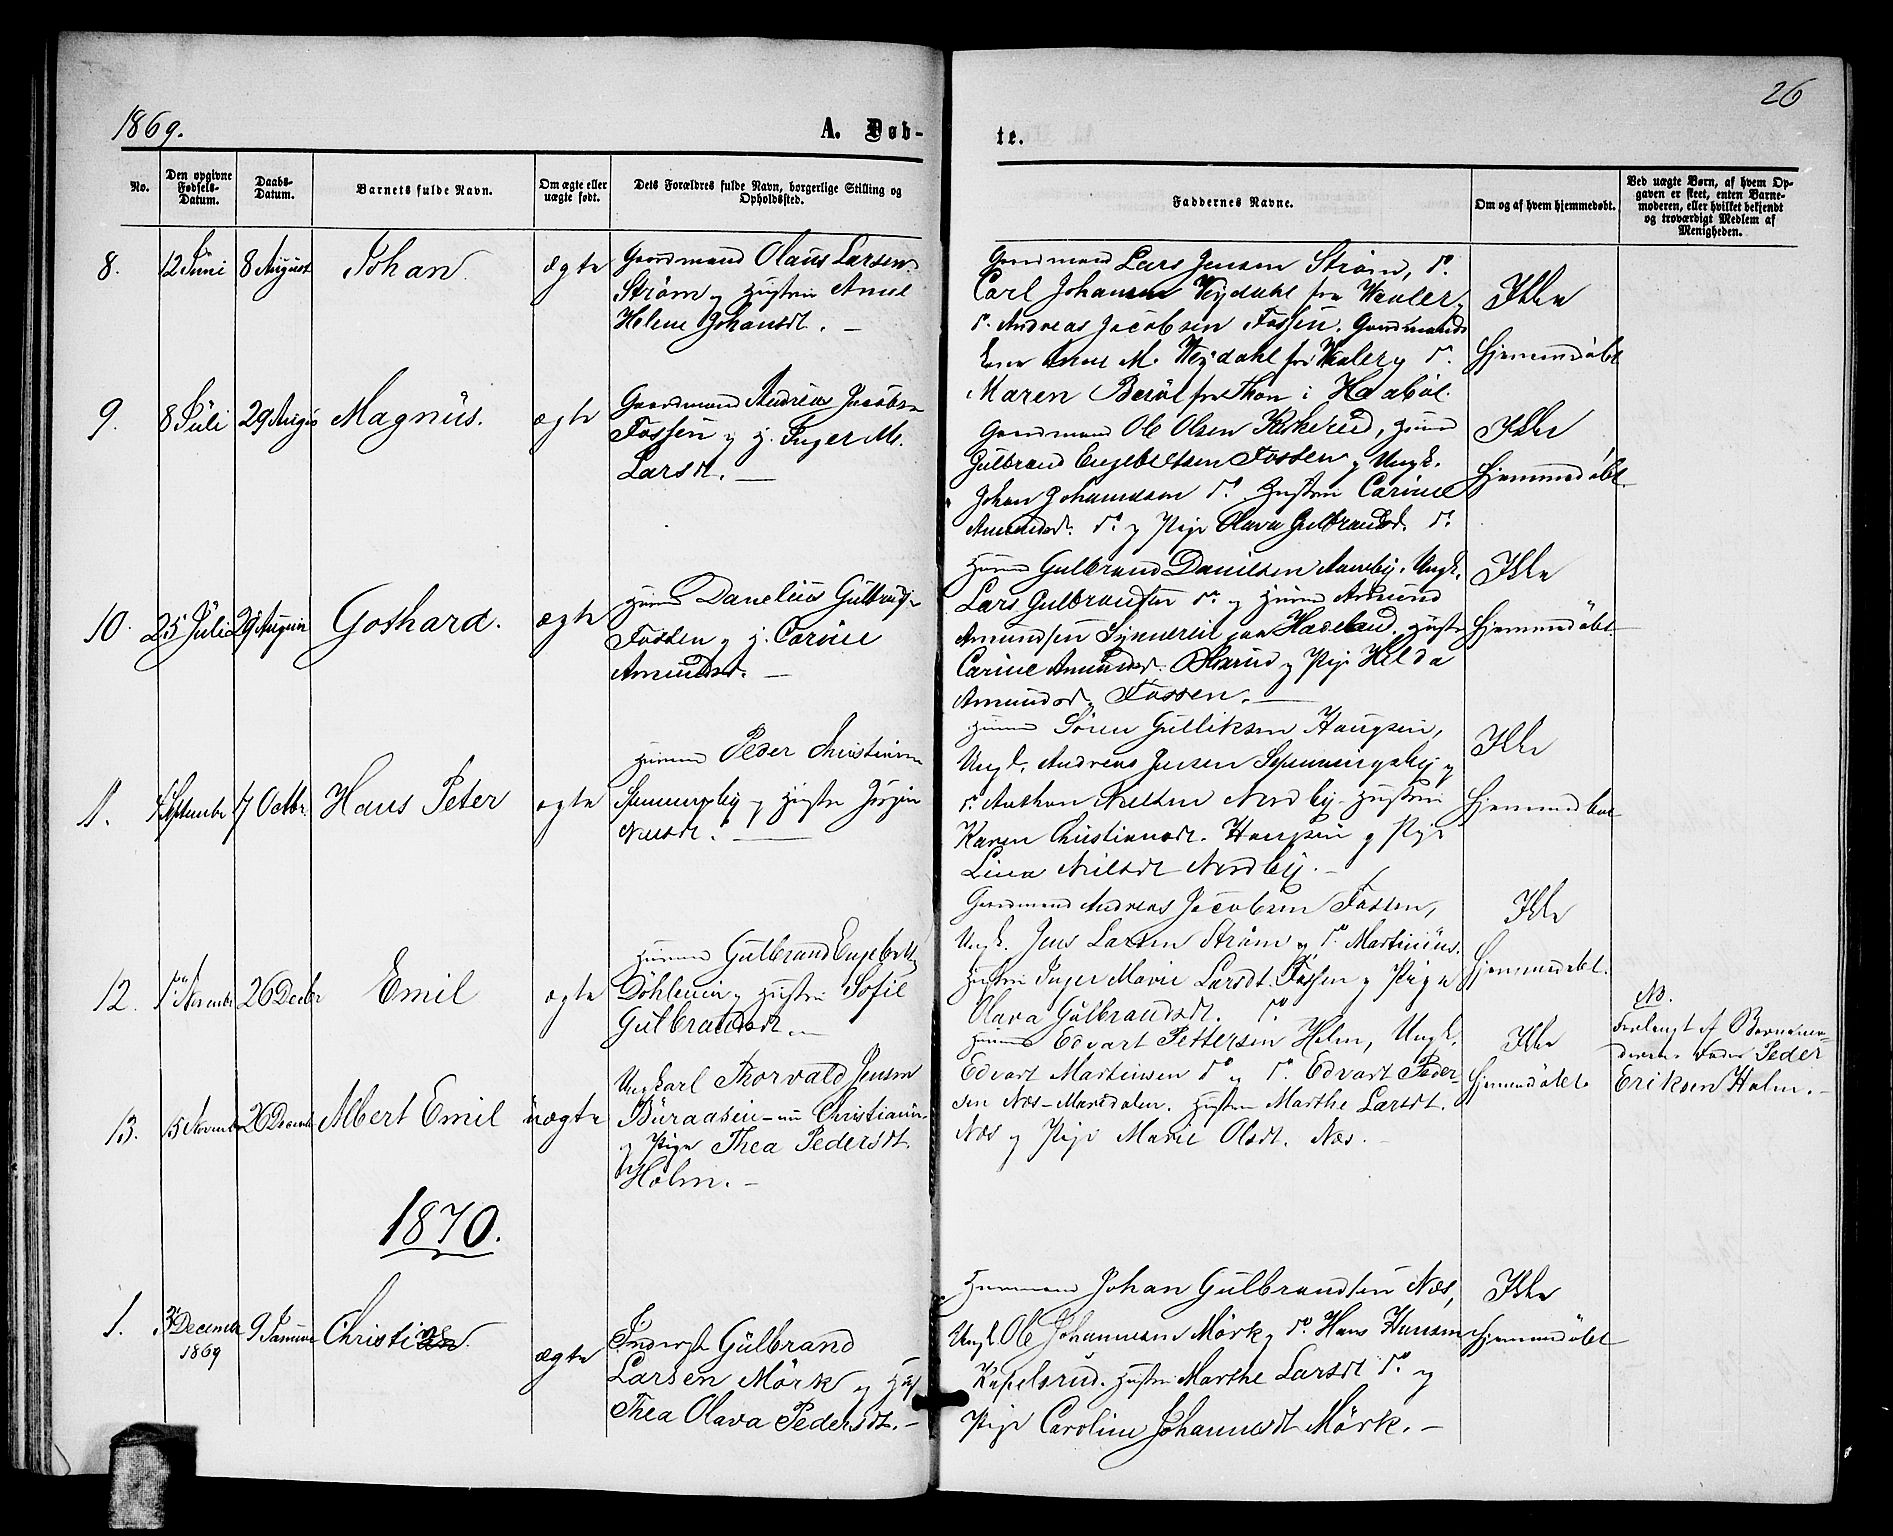 1869.
A. Døb-
te.
26
No.
Den opgivne Fødsels-Datum.
Daabs-Datum.
Barnets fulde Navn.
Om ægte eller uægte født.
Dets Forældres fulde Navn, borgerlige Stilling og Opholdssted.
Faddernes Navne.
Om og af hvem hjemmedøbt.
Ved uægte Børn, af hvem Op-
gaven er skeet, enten Barne-
moderen, eller hvilket bekjendt
og troværdigt Medlem af
Menigheden.
8. 12 Juni 8 August Johan. ægte
Gaardmand Olaus Larsen
Strøm og Hustru Anne
Helene Johansdt. —
Gaardmand Lars Jensen Strøm, do.
Carl Johansen Vejdahl fra Waaler,
do. Andreas Jacobsen Fossen. Gaardmands
M. Vejdahl fra Waaler og do.
Maren fra Thon i Haabøl.
Ikke
hjemmedøbt
9. 8 Juli 29 Augus Magnüs. ægte
Gaardmand Andreas Jacobsen
Fossen og H. Inger M.
Larsdt. —
Gaardmand Ole Olsen Kirkerud, Huusm
Gulbrand Engebretsen Fossen og Ungk.
Johan Johannesen do. Hustru Carine
Amundsd. do. og Pige Olava Gulbrandsd. do.
Ikke
hjemmedøbt.
10. 25 Juli 29 August Gothard. ægte
Huusm Danelius Gulbrands
Fossen og H. Carine
Amundsd. —
Huusm Gulbrand Danilsen Aaneby, Ungk.
Lars Gulbrandsen do. og Huusm Amund
Amundsen paa Hadeland. Hustru
Carine Amundsd. og Pige Helda
Amundsd. Fossen. —
Ikke
hjemmedøbt.
11. 4 September 17 Octbr. Hans Peter ægte
Huusm Peder Christiansen
Spenningsby og Hustru Jørgine
Nielsdt. —
Huusm Søren Gulliksen Haugsein,
Ungk. Andreas Jensen Spenningsby og
do. Anthon Nielsen Nordby. Hustru
Karen Christiansdt. Haugsein og Pige
Lina Nielsdt Nordby. —
Ikke
hjemmedøbt
12. 1ste November 26 Decbr Emil ægte
Huusm Gulbrand Engebrets
Döhlenein og Hustru Sofie
Gulbrandsdt. —
Gaardmand Andreas Jacobsen Fossen,
Ungk. Jens Larsen Strøm og do. Martinius.
Hustru Inger Marie Larsdt. Fossen og Pige
Olava Gulbrandsdt. do.
Ikke
hjemmedøbt.
13. 15 November 26 Decemb Albert Emil uægte
Ungkarl Thorvald Jensen
Büraasein — nu Christiania
og Pige Thea Pedersdt.
Holm. —
Huusm Edvart Pettersen Holm, Ungk.
Edvart Martinsen do. og do. Edvart Peder-
sen Næs-Marsdalen. Hustru Marthe Larsdt.
Næs og Pige Marie Olsdt. Næs. —
Ikke
hjemmedøbt
No.
Forlangt af Barnemo-
derens Fader Peder
Eriksen Holm. —
1870.
1. 3 December 1869 9 Januar Christian. ægte
Inderst Gulbrand
Larsen Mörk og Hus
Thea Olava Pedersdt. —
Huusmand Johan Gulbrandsen Næs,
Ungk Ole Johannesen Mörk og do. Hans Hansen
Kapelsrud. Hustru Marthe Larsdt do. og
Pige Caroline Johannesdt Mörk. —
Ikke
hjemmedøbt